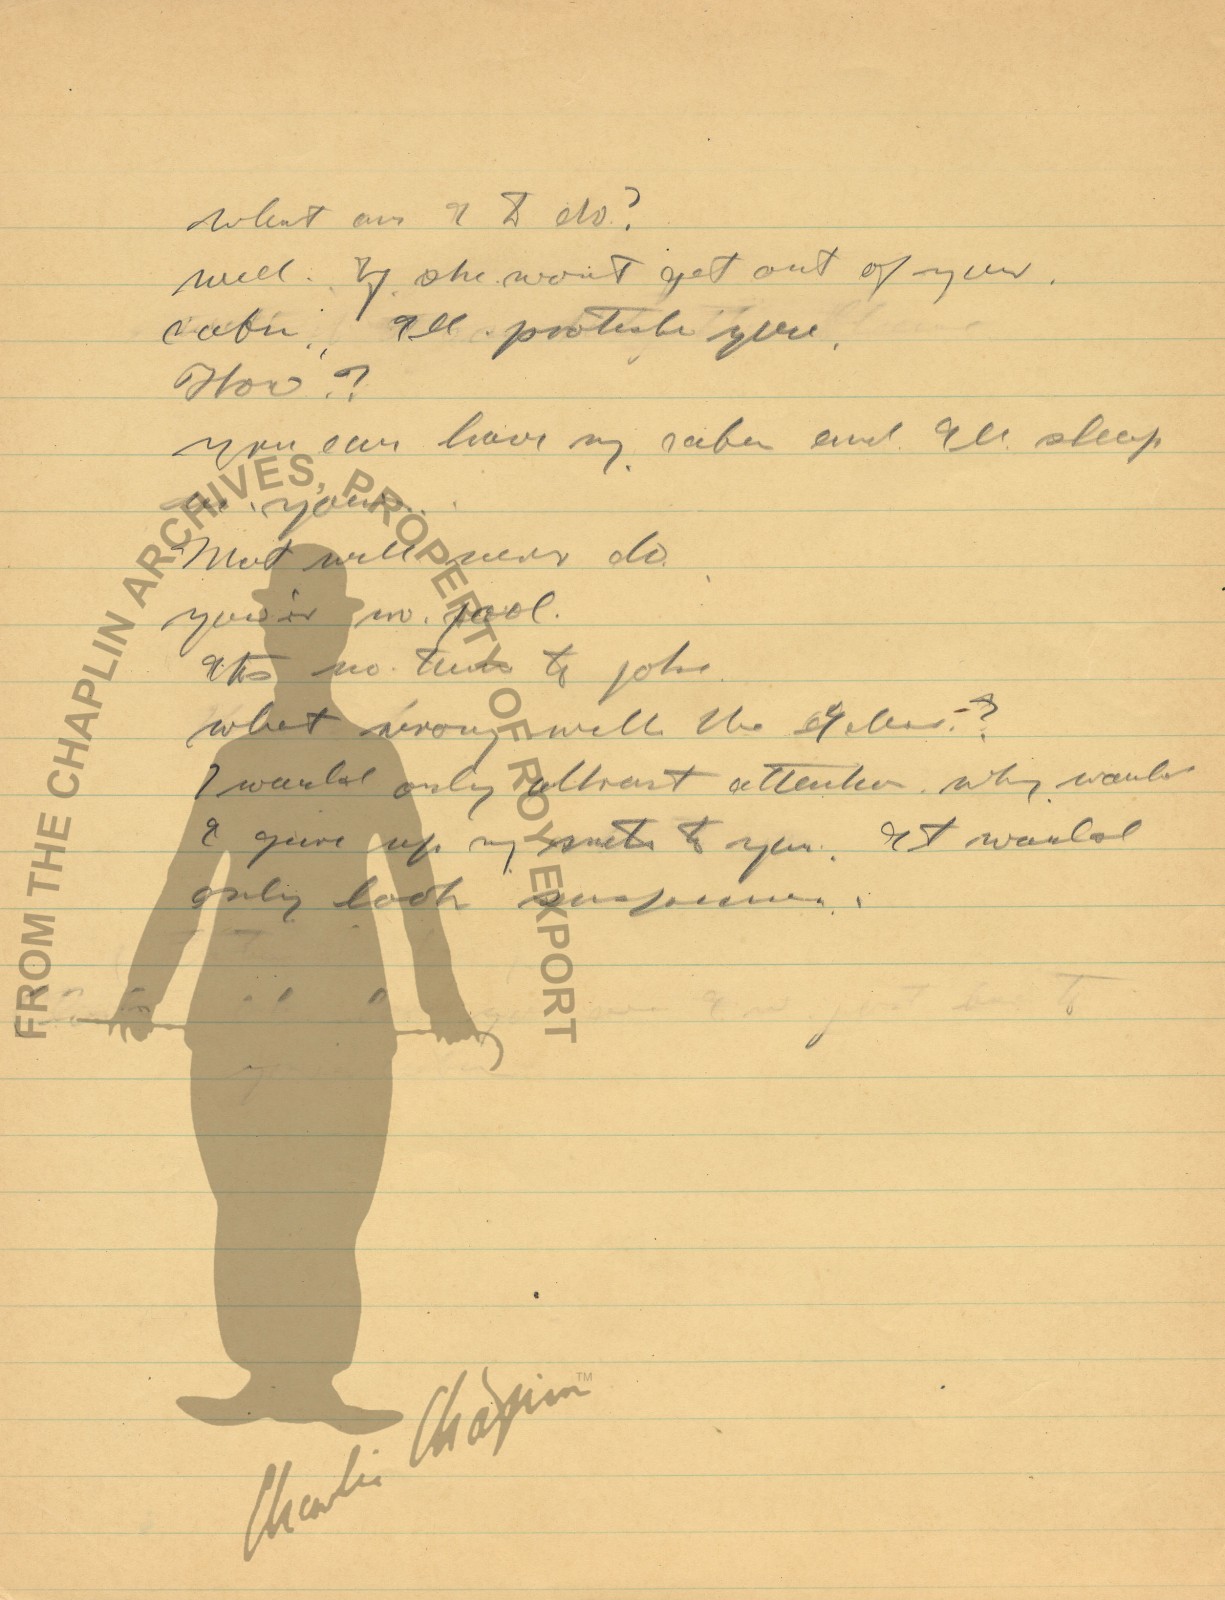 what am I to do?
well. If she wont get out of your.
cabin., I'll protect you.
How?
you can have my cabin and I'll sleep
in yours.
That will never do.
you're no fool.
Its no time to joke.
what wrong with the idea?
I would only attract attention. why would
I give up my suite to you. It would
only look suspicious.
FROM THE CHAPLIN ARCHIVES, PROPERTY OF ROY EXPORT
Charlie Chaplin™